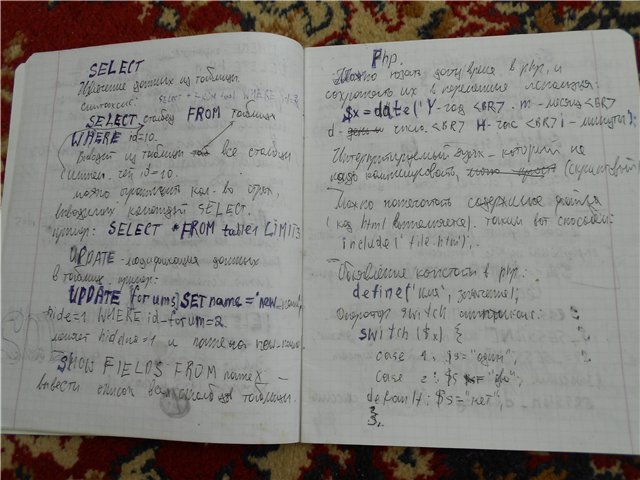 SELECT
Извлечение данных из таблицы.
синтаксис: select * FROM tabl WHERE id=3
SELECT столбец FROM таблица
WHERE id=10.
Выведет из таблицы все столбцы
id=10.
можно ограничить кол-во строк,
выводимых командой SELECT.
пример: SELECT * FROM table1 LIMIT 3
UPDATE - модификация данных
в таблице. пример:
UPDATE [forums] SET name='new_name,
hide=1 WHERE id_forum=2
hidden=1 и new-name.
SHOW FIELDS FROM nameX -
вывести список столбцов таблицы.
Php.
Можно узнать дату/время в php, и
сохранить их в переменные используя:
$x=date('Y-год <BR> . m - месяц <BR>
d - число. <BR> H-час <BR> i - минуты');
Интерпретируемый - который не
надо компилировать, (скриптовый)
Можно напечатать содержание файла
(код html выполняется). таким вот способом:
include('file.html');.
Объявление константы в php:
define('имя', значение);
Оператор switch
switch ($x) {
case 1: $s="один";
case 2: $s="два";
default: $s="нет";
};